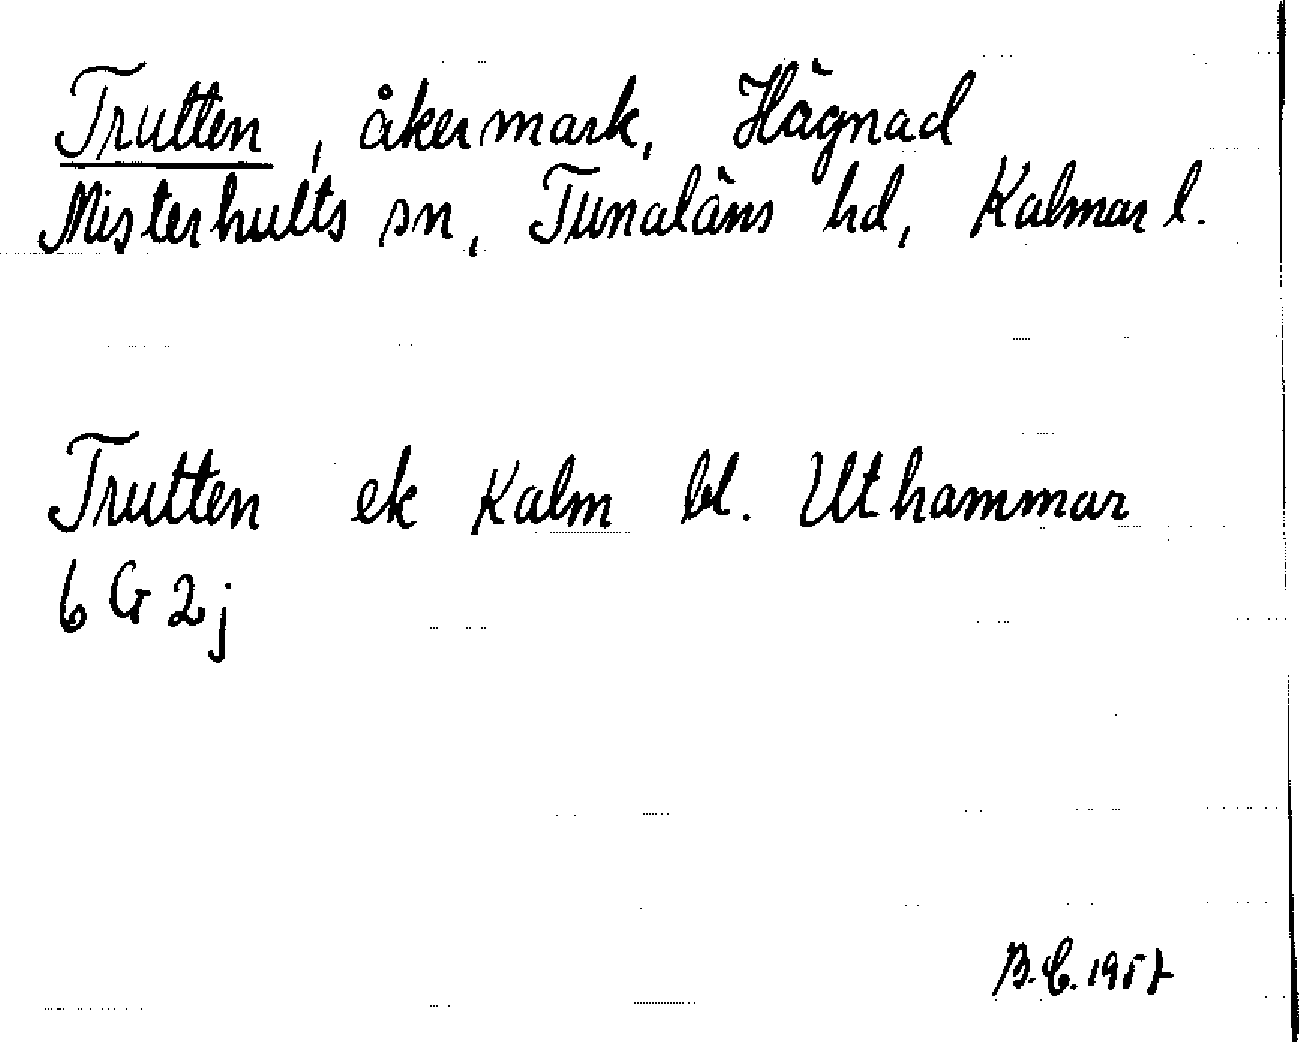 Trutten, åkermark, Hägnad
Misterhults sn, Tunaläns hd, Kalmar l.
Trutten ek Kalm bl. Uthammar
6 G 2j
B.E. 1957